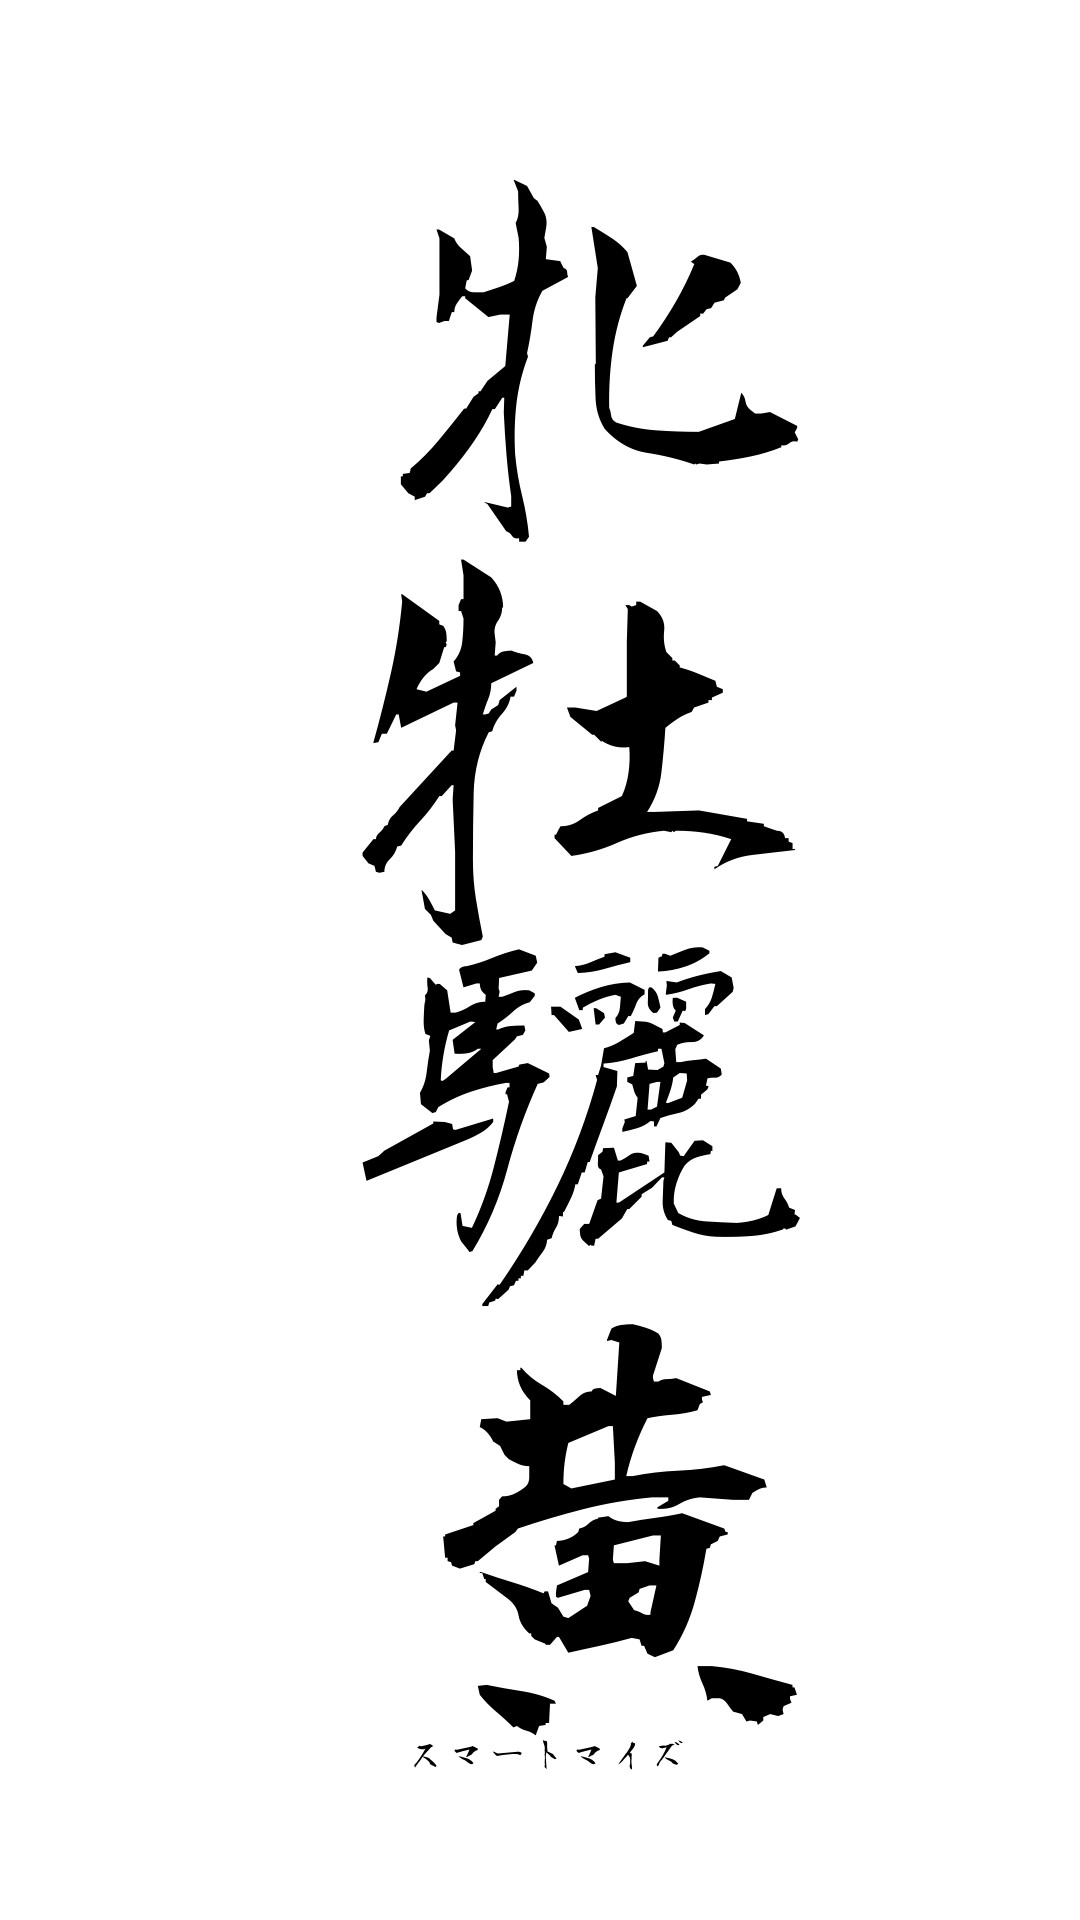 牝牡驪黄
スマートマイズ